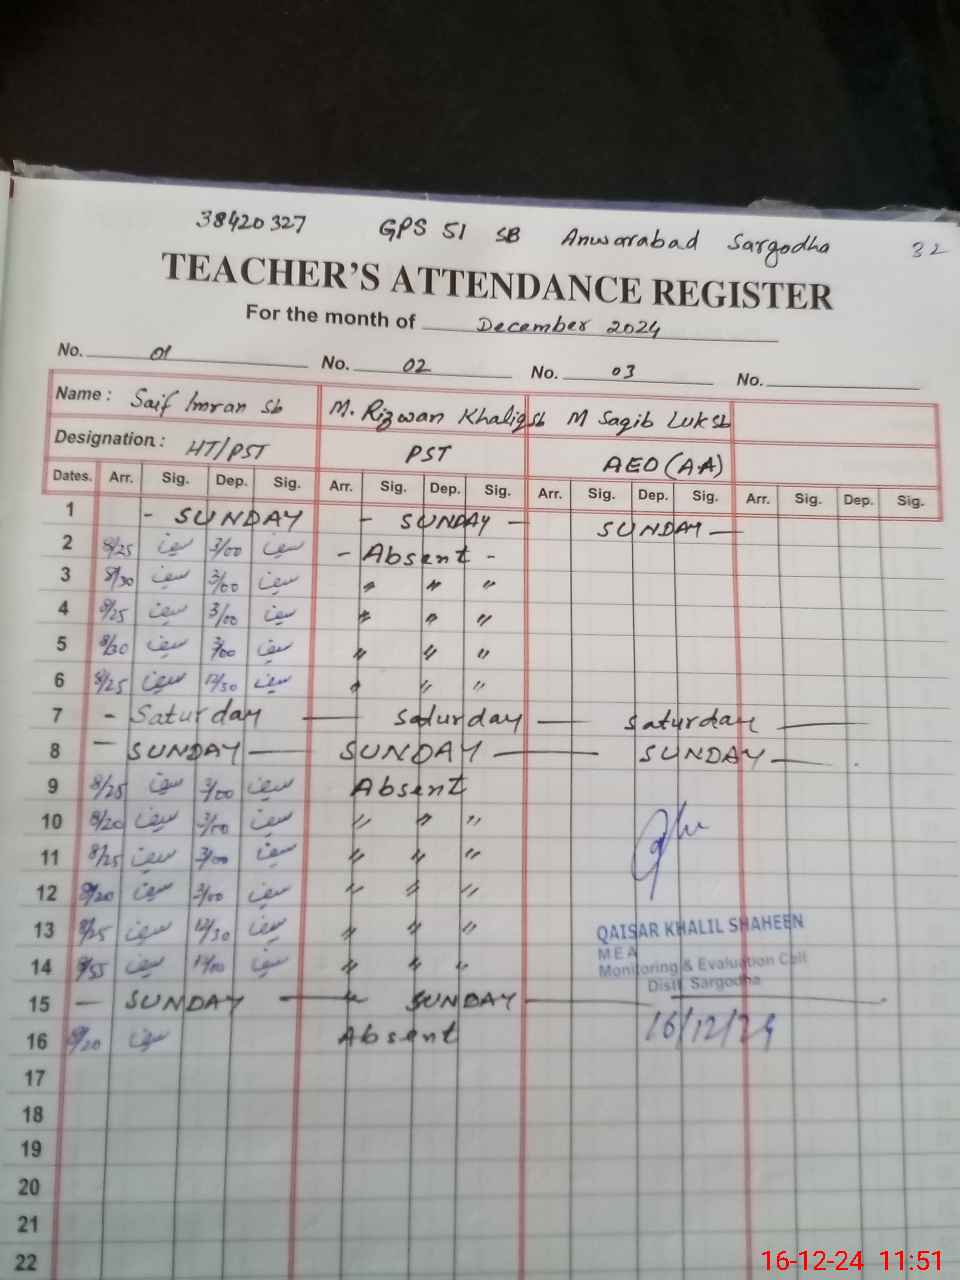 38420327 GPS 51 SB Anwarabad Sargodha 32
TEACHER'S ATTENDANCE REGISTER
For the month of December 2024
No. 01 No. 02 No. 03 No.
Name : Saif Imran Sb M. Rizwan Khaliq sb M Saqib Luk sb
Designation : HT/PST PST AEO (AA)
Dates. Arr. Sig. Dep. Sig. Arr. Sig. Dep. Sig. Arr. Sig. Dep. Sig. Arr. Sig. Dep. Sig.
1 - SUNDAY - SUNDAY - SUNDAY -
2 8/25 سیف 3/00 سیف - Absent -
3 8/30 سیف 3/00 سیف " " "
4 8/25 سیف 3/00 سیف " " "
5 8/30 سیف 3/00 سیف " " "
6 8/25 سیف 12/30 سیف " " "
7 - Saturday - Saturday - Saturday -
8 - SUNDAY - SUNDAY - SUNDAY -
9 8/25 سیف 3/00 سیف Absent
10 8/20 سیف 3/00 سیف " " "
11 8/25 سیف 3/00 سیف " " "
12 8/20 سیف 3/00 سیف " " "
13 8/25 سیف 12/30 سیف " " "
QAISAR KHALIL SHAHEEN
MEA
Monitoring & Evaluation Cell
Distt. Sargodha
14 سیف سیف " " "
15 - SUNDAY - SUNDAY -
16/12/24
16 8/20 سیف Absent
17
18
19
20
21
22
16-12-24 11:51